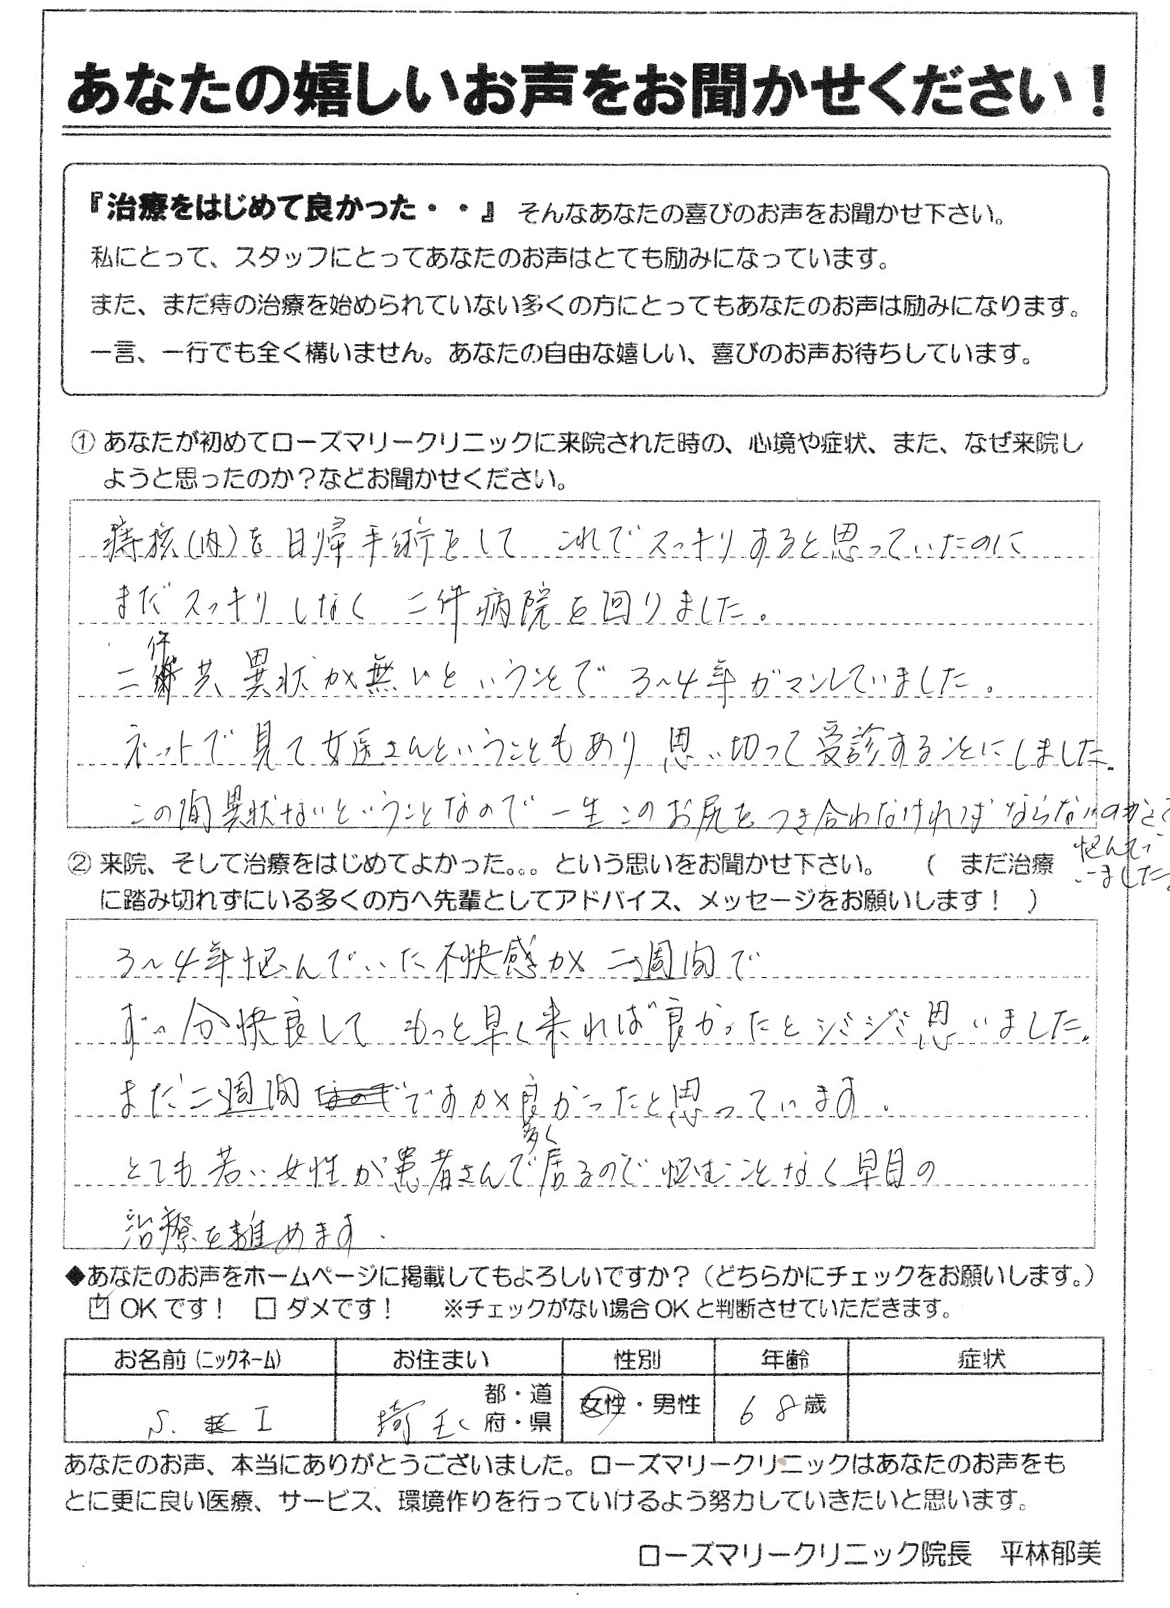 あなたの嬉しいお声をお聞かせください!
『治療をはじめて良かった・・』 そんなあなたの喜びのお声をお聞かせ下さい。
私にとって、スタッフにとってあなたのお声はとても励みになっています。
また、まだ痔の治療を始められていない多くの方にとってもあなたのお声は励みになります。
一言、一行でも全く構いません。あなたの自由な嬉しい、喜びのお声お待ちしています。
① あなたが初めてローズマリークリニックに来院された時の、心境や症状、また、なぜ来院し
ようと思ったのか?などお聞かせください。
痔核(内)を日帰手術をして これでスッキリすると思っていたのに
まだスッキリしなく 二件病院を回りました。
二件共 異状が無いということで 3~4年ガマンしていました。
ネットで見て女医さんということもあり 思い切って受診することにしました。
この間異状ないということなので 一生このお尻をつき合わなければならないのかと
悩んで
いました。
② 来院、そして治療をはじめてよかった。。。という思いをお聞かせ下さい。 ( まだ治療
に踏み切れずにいる多くの方へ先輩としてアドバイス、メッセージをお願いします! )
3~4年悩んでいた不快感が 二週間で
ずい分快良して もっと早く来れば良かったとシミジミ思いました。
まだ二週間ですが良かったと思っています.
とても若い女性が患者さんで多く居るので悩むことなく早目の
治療を進めます.
◆あなたのお声をホームページに掲載してもよろしいですか?(どちらかにチェックをお願いします。)
☑ OKです! □ ダメです! ※チェックがない場合OKと判断させていただきます。
お名前(ニックネーム) お住まい 性別 年齢 症状
S. I 埼玉 都・道 府・県 女性・男性 68歳
あなたのお声、本当にありがとうございました。ローズマリークリニックはあなたのお声をも
とに更に良い医療、サービス、環境作りを行っていけるよう努力していきたいと思います。
ローズマリークリニック院長 平林郁美